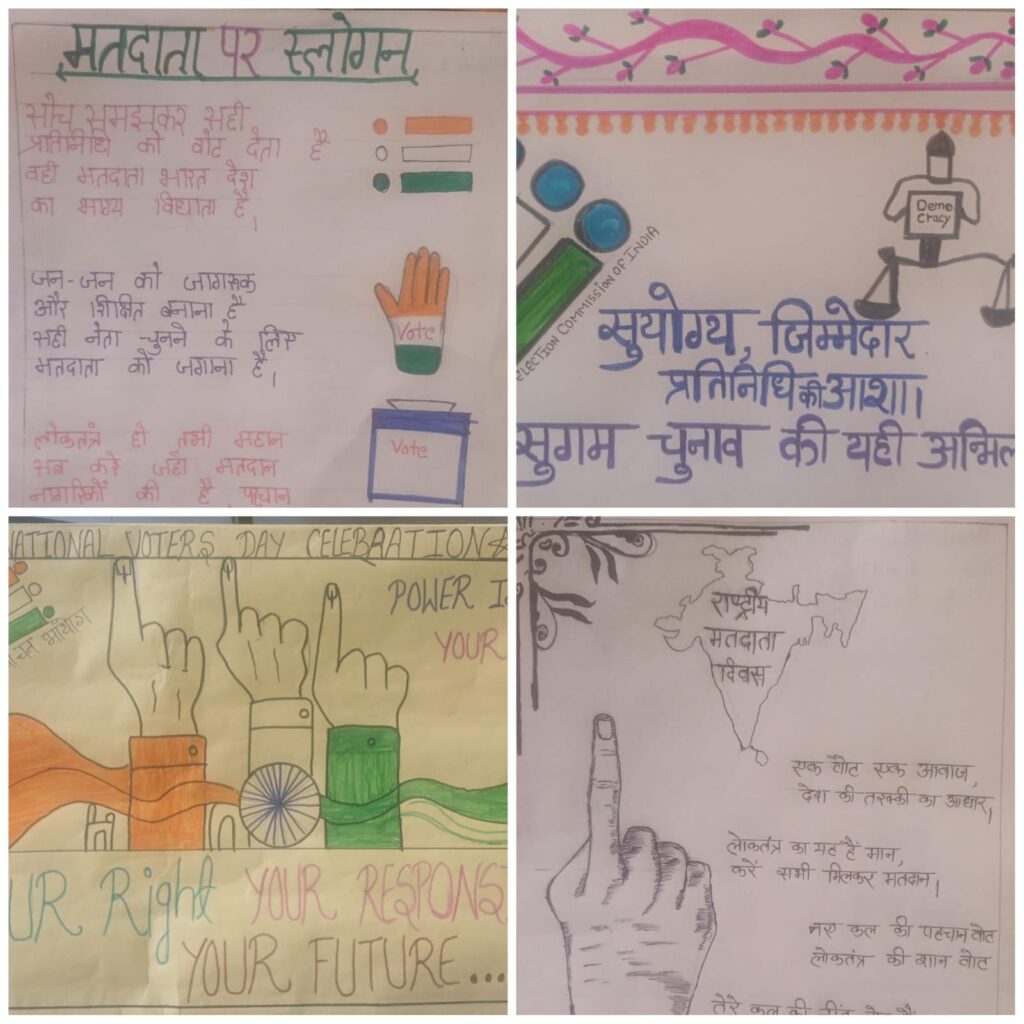 मतदाता पर स्लोगन
सोच समझकर सही
प्रतिनिधि को वोट देता है
वही मतदाता भारत देश
का भाग्य विधाता है।
जन-जन को जागरूक
और शिक्षित बनाना है
सही नेता चुनने के लिए
मतदाता को जगाना है।
लोकतंत्र हो तभी महान
सब करे जहाँ मतदान
नागरिकों की है पहचान
Vote
Vote
ELECTION COMMISSION OF INDIA
Demo
cracy
सुयोग्य, जिम्मेदार
प्रतिनिधि की आशा।
सुगम चुनाव की यही
NATIONAL VOTERS DAY CELEBRATION
POWER I
YOUR
UR Right YOUR RESPONS
YOUR FUTURE...
राष्ट्रीय
मतदाता
दिवस
एक वोट एक आवाज,
देश की तरक्की का आधार।
लोकतंत्र का यह हैं मान,
करें सभी मिलकर मतदान।
नए कल की पहचान वोट
लोकतंत्र की शान वोट
तेरे कल की